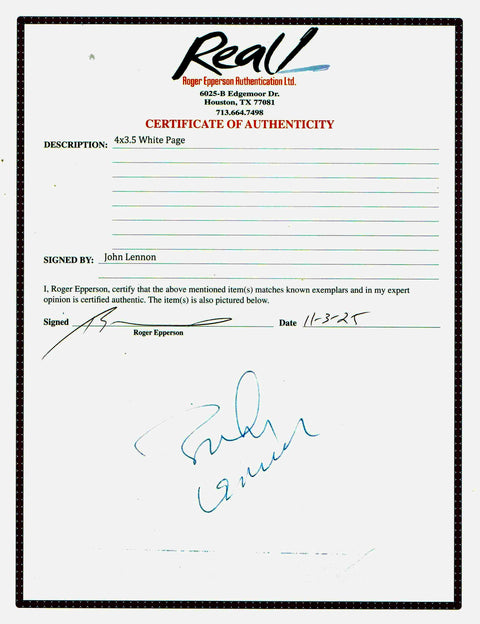 Real!
Roger Epperson Authentication Ltd.
6025-B Edgemoor Dr.
Houston, TX 77081
713.664.7498
CERTIFICATE OF AUTHENTICITY
DESCRIPTION: 4x3.5 White Page
SIGNED BY: John Lennon
I, Roger Epperson, certify that the above mentioned item(s) matches known exemplars and in my expert
opinion is certified authentic. The item(s) is also pictured below.
Signed Date 11-3-25
Roger Epperson
Lennon